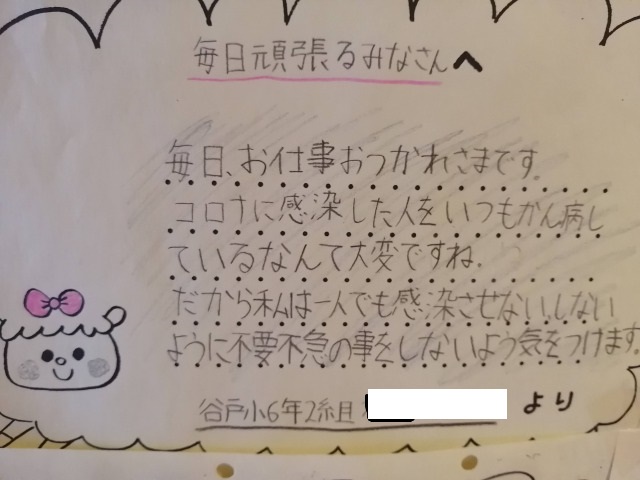 毎日頑張るみなさんへ
毎日、お仕事おつかれさまです。
コロナに感染した人をいつもかん病し
ているなんて大変ですね。
だから私は一人でも感染させない、しない
ように不要不急の事をしないよう気をつけます。
谷戸小6年2組 より